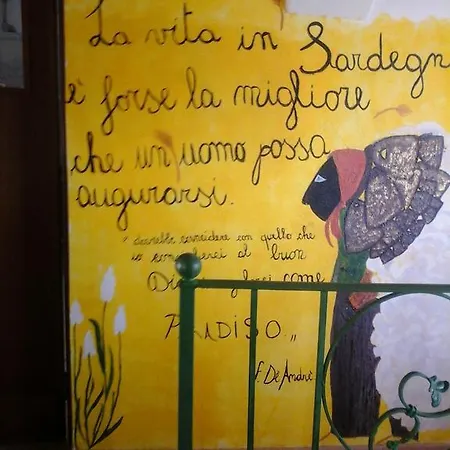 La vita in Sardegn
è forse la migliore
che un uomo possa
augurarsi.
coincidere con quello che
io al buon
Dio come
F. De André